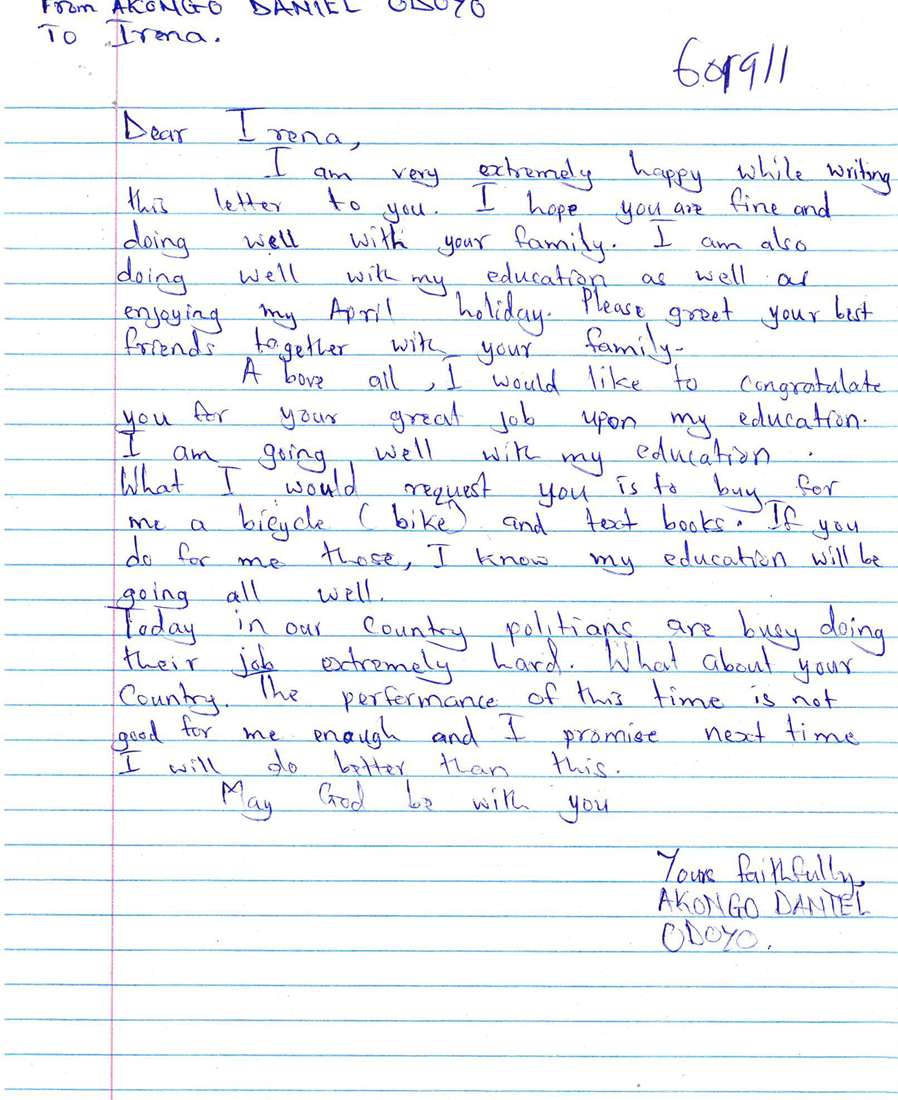 From AKONGO DANIEL ODOYO
To Irena.
Dear Irena,
I am very extremely happy while writing
this letter to you. I hope you are fine and
doing well with your family. I am also
doing well with my education as well as
enjoying my April holiday. Please greet your best
friends together with your family.
A bove all, I would like to congratulate
you for your great job upon my education.
I am going well with my education.
What I would request you is to buy for
me a bicycle (bike) and text books. If you
do for me those, I know my education will be
going all well.
Today in our Country politians are busy doing
their job extremely hard. What about your
Country. The performance of this time is not
good for me enough and I promise next time
I will do better than this.
May God be with you
Yours faithfully,
AKONGO DANIEL
ODOYO.